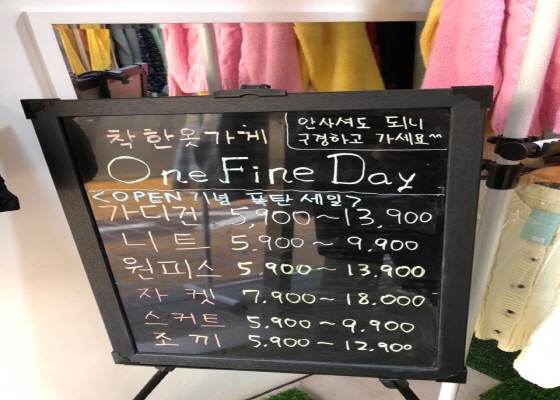 착한옷가게
안사셔도 되니
구경하고 가세요~~
One Fine Day
<OPEN기념 폭탄세일>
가디건 5,900~13,900
니트 5,900~9,900
원피스 5.900~13.900
자켓 7.900~18.000
스커트 5.900~9.900
조끼 5.900~12.900